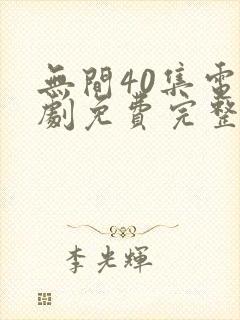 無間40集電
劇免費完整
李光輝